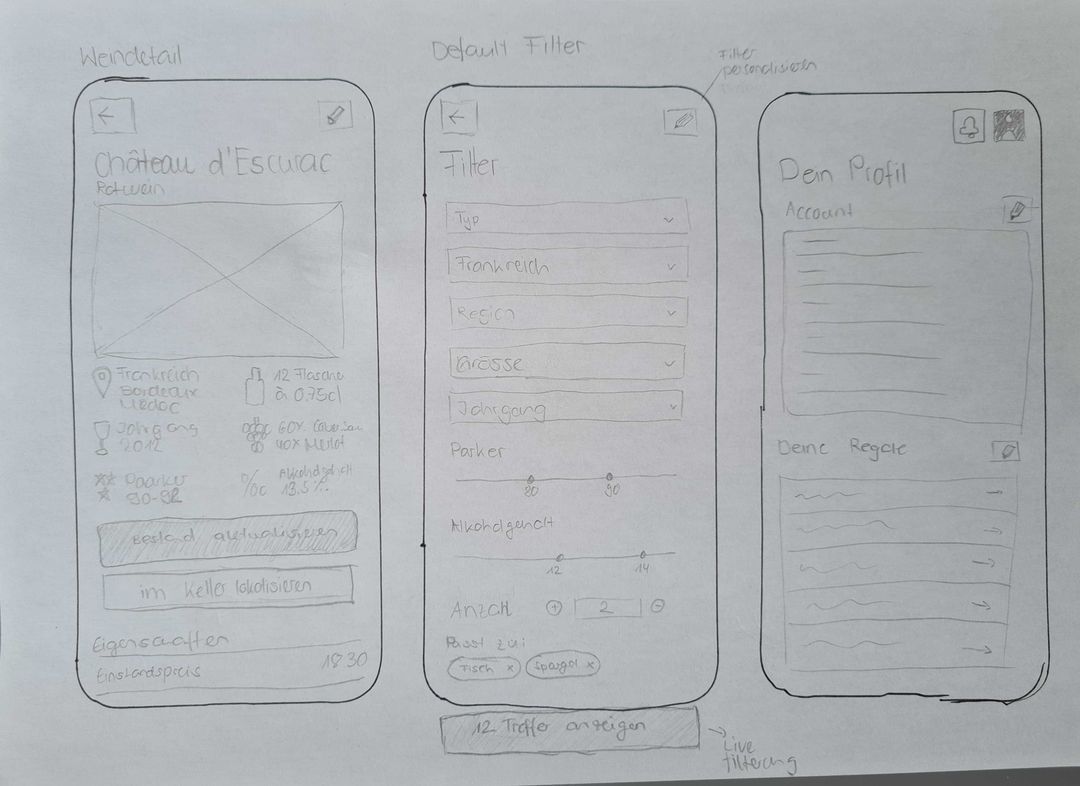 Weindetail
Château d'Escurac
Rotwein
Frankreich
Bordeaux
Médoc
12 Flasche
à 0.75cl
Jahrgang
2012
60%
40% Merlot
Paarker
90-92
%
Alkoholgehalt
13.5 %
Bestand aktualisieren
im Keller lokalisieren
Eigenschaften
Einstandspreis 18.30
Default Filter
Filter
personalisieren
Filter
Typ
Frankreich
Region
Grösse
Jahrgang
Parker
80 90
Alkoholgehalt
12 14
Anzahl + 2 -
Passt zu:
Fisch x Spargel x
12 Treffer anzeigen
Live
filterung
Dein Profil
Account
Deine Regale